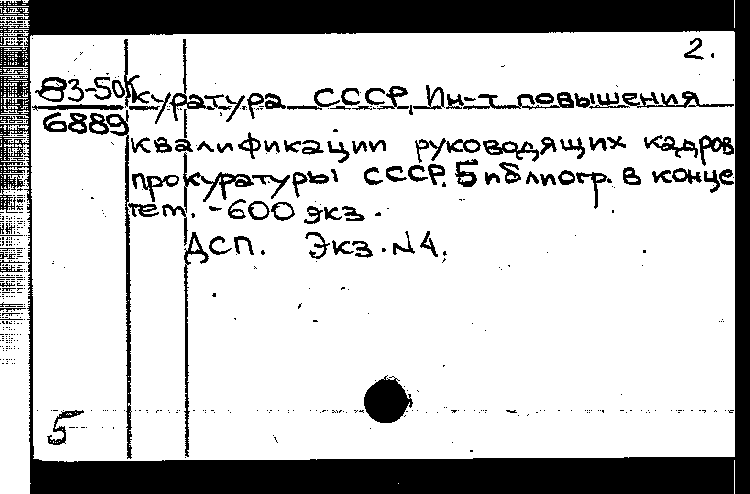 2.
83-50к
6889
куратура СССР, Ин-т повышения
квалификации руководящих кадров
прокуратуры СССР. Библиогр. в конце
тем. - 600 экз.
ДСП. Экз. N4.
5